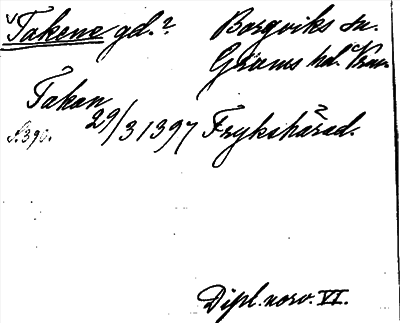 Takene gd.? Borgviks sn.
Grums hd. Vrml.
Takan 29/3 1397 Frykshärad.
N:390.
Dipl. norv. VI.